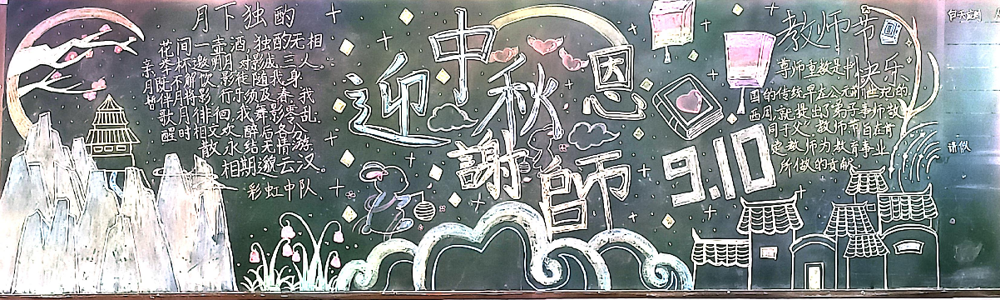 月下独酌
花间一壶酒,独酌无相
亲。举杯邀明月,对影成三人。
月既不解饮,影徒随我身。
暂伴月将影,行乐须及春。我
歌月徘徊,我舞影零乱。
醒时相交欢,醉后各分
散。永结无情游,
相期邈云汉。
彩虹中队
迎中秋
谢师恩
9.10
教师节
快乐
尊师重教是中
国的传统,早在公元前11世纪的
西周,就提出"弟子事师,敬
同于父"
教师为教育事业
所做的贡献